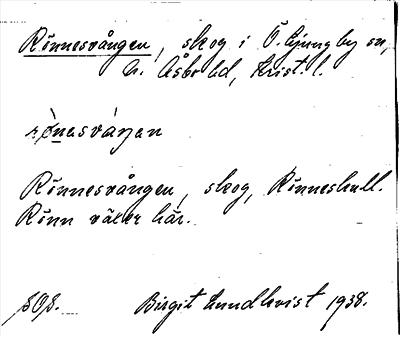 Rönnesvången, skog i Ö. Ljungby sn,
N. Åsbo hd, Krist. l.
rø̀nesváŋen
Rönnesvången, skog, Rönneskull.
Rönn växer här.
Birgit Lundkvist 1938.